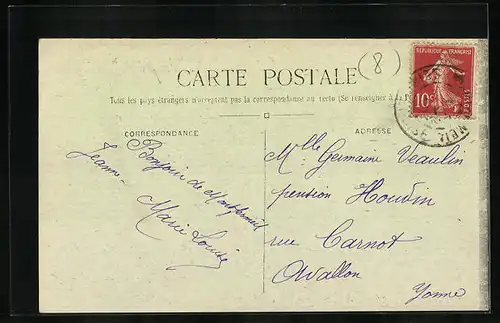 (8)
RÉPUBLIQUE FRANÇAISE
10c
POSTES
CARTE POSTALE
Tous les pays étrangers n'acceptent pas la correspondance au recto (Se renseigner à la
CORRESPONDANCE
ADRESSE
Bonjour de Montfermeil
Jeanne
Marie Louise
Mlle Germaine Veaulin
pension Houdin
rue Carnot
Avallon
Yonne